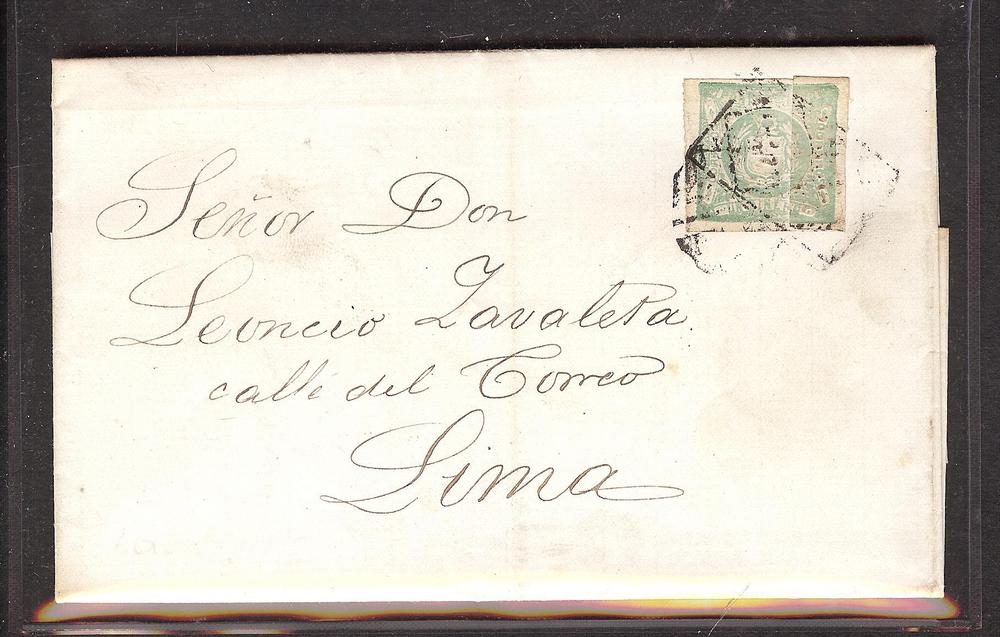 Señor Don
Leoncio Zavaleta
calle del Correo
Lima